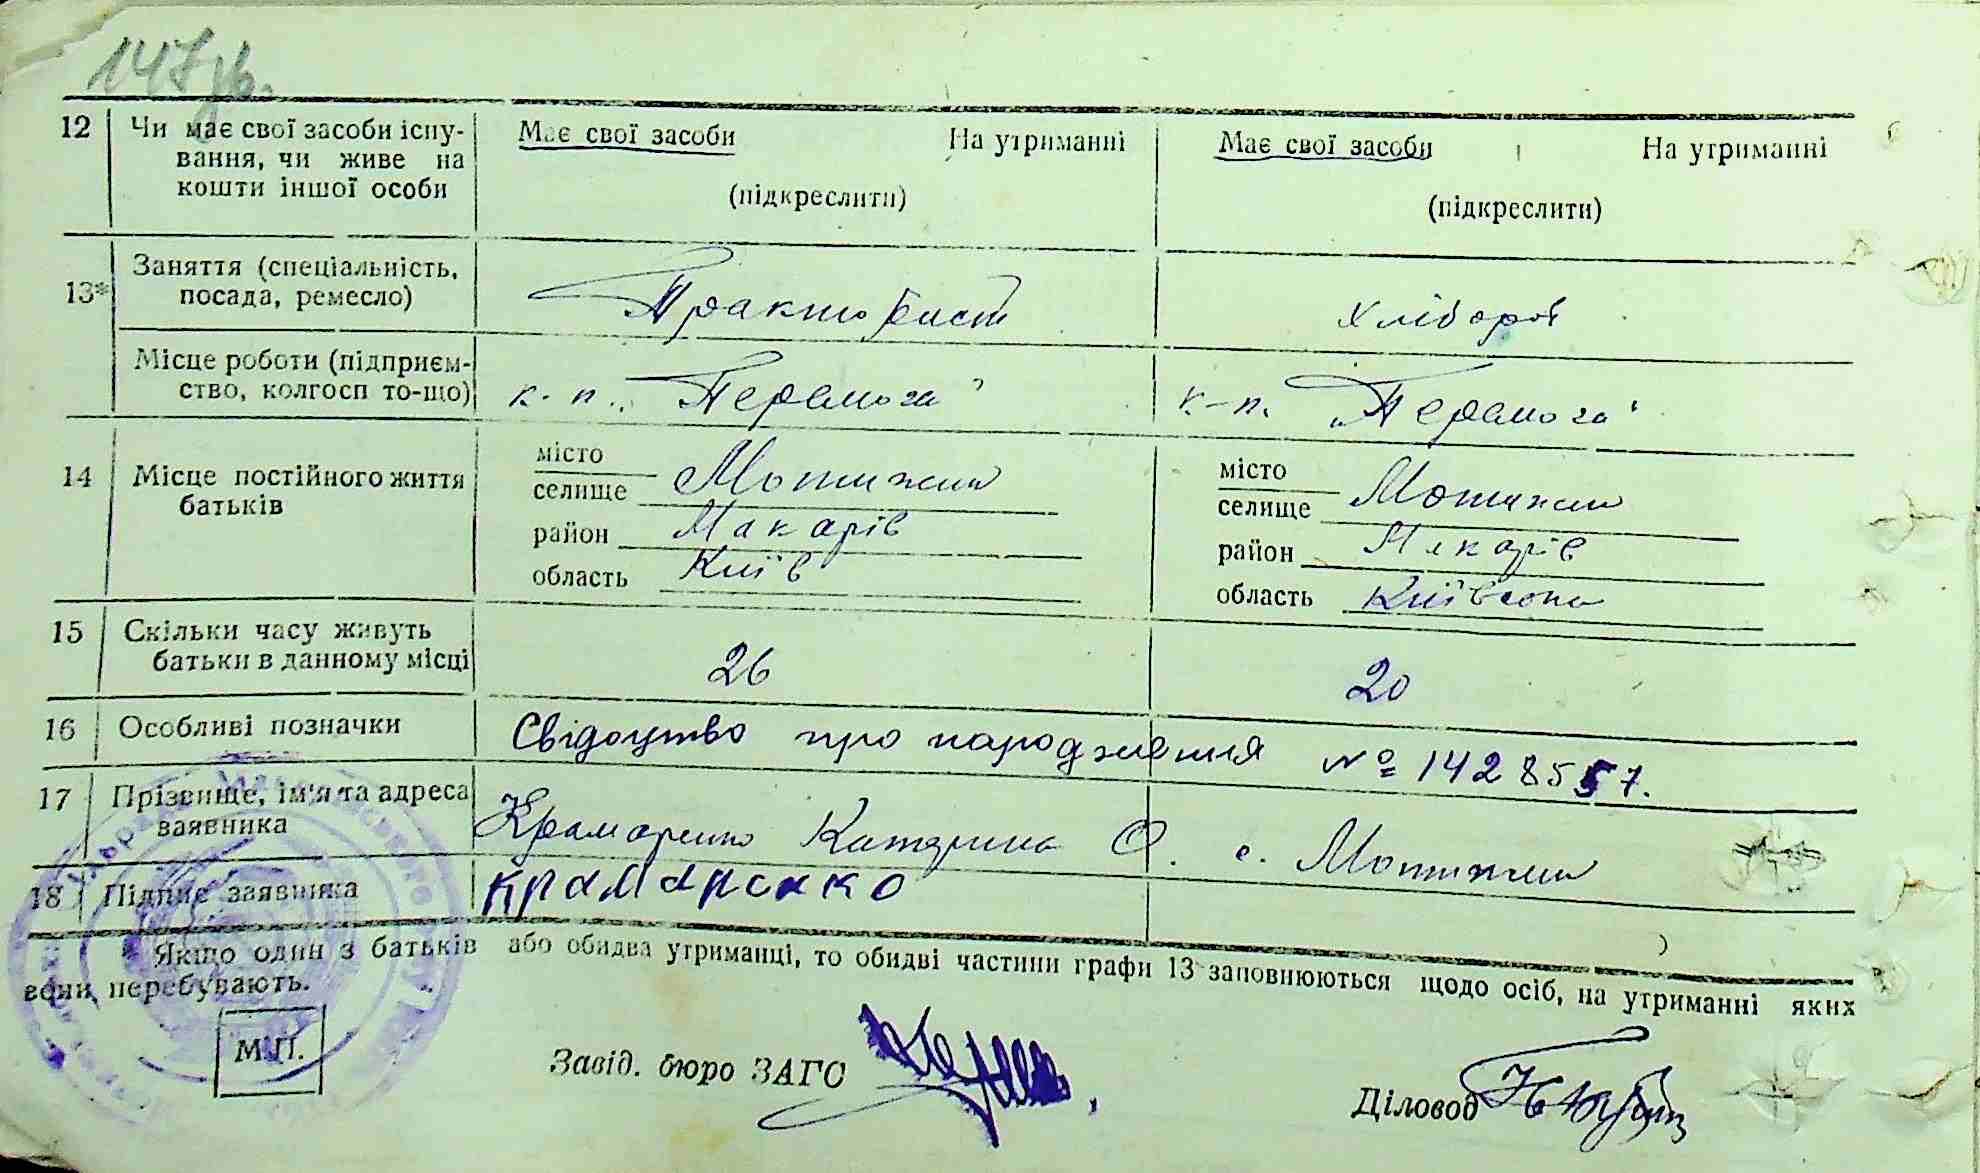 147 зв.
12 Чи має свої засоби існу- Має свої засоби На утриманні Має свої засоби На утриманні
вання, чи живе на
кошти іншої особи (підкреслити) (підкреслити)
13* Заняття (спеціальність,
посада, ремесло) Тракторист хлібороб
Місце роботи (підприєм-
ство, колгосп то-що) к-п. „Перемога" к-п. „Перемога"
14 Місце постійного життя
батьків
місто місто
селище Мотижин селище Мотижин
район Макарів район Макарів
область Київ область Київська
15 Скільки часу живуть
батьки в данному місці 26 20
16 Особливі позначки Свідоцтво про народження № 1428557.
17 Прізвище, ім'я та адреса
заявника Крамаренко Катерина О. с. Мотижин
18 Підпис заявника Крамаренко
Якщо один з батьків або обидва утриманці, то обидві частини графи 13 заповнюються щодо осіб, на утриманні яких
вони перебувають.
М.П. Завід. бюро ЗАГС
Діловод